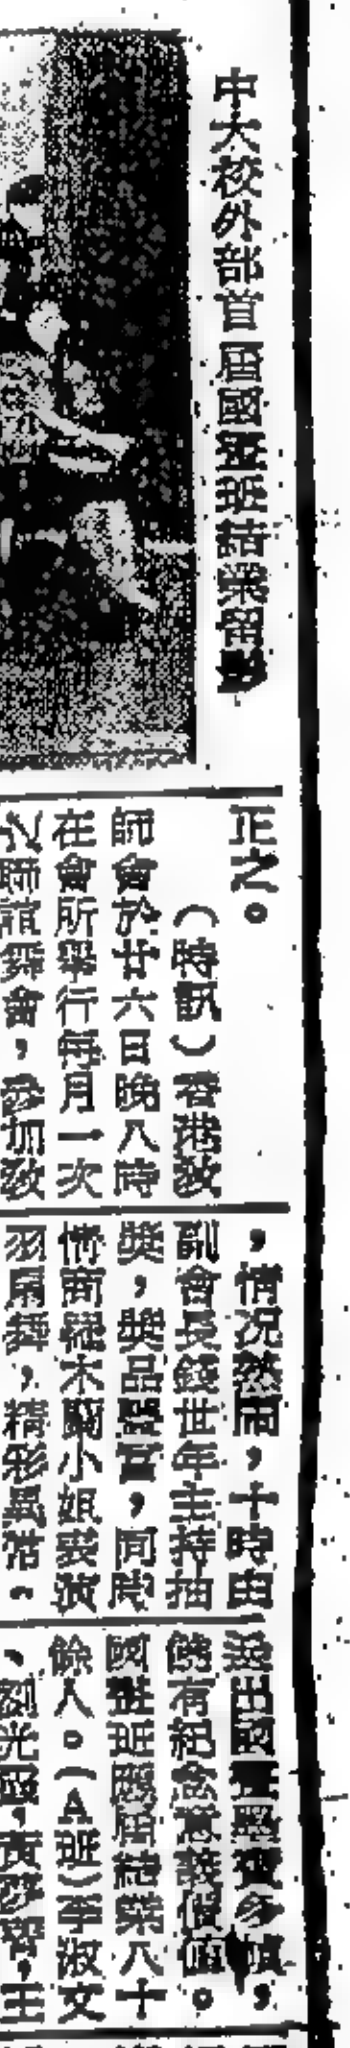 中大校外部首屆國畫班結業留影
正之。
（時訊）香港教
師會於廿六日晚八時
在會所舉行每月一次
之聯誼舞會，參加教
，情况熱鬧，十時由
副會長錢世年主持抽
獎，獎品豐富，同時
情商羅木蘭小姐表演
羽扇舞，精彩異常。
出國畫多幀，
有紀念意義。
國畫班屆結業八十
餘人。（A班）李淑文
、劉光國，黃，王